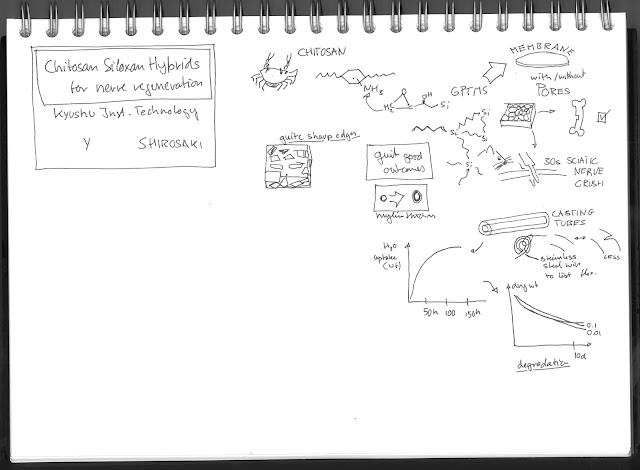 Chitosan Siloxan Hybrids
for nerve regeneration
Kyushu Inst. Technology
Y SHIROSAKI
CHITOSAN
NH3
OH
Si
GPTMS
MEMBRANE
with/without
PORES
quite sharp edges
quit good
outcomes
Si
Si
Si
Si
30s SCIATIC
NERVE
CRUSH
CASTING
TUBES
stainless
steel wire
to
less
H2O
uptake
(wt)
50h 100 150h
dry wt
0.1
0.01
10d
degradation